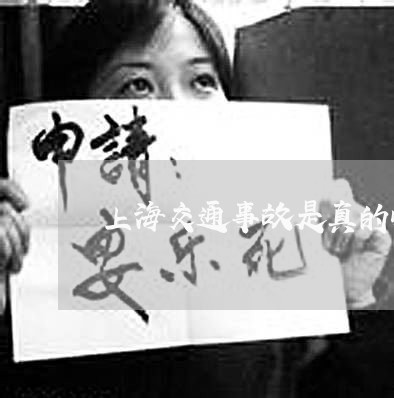 申請:
上海交通事故是真的
安乐死